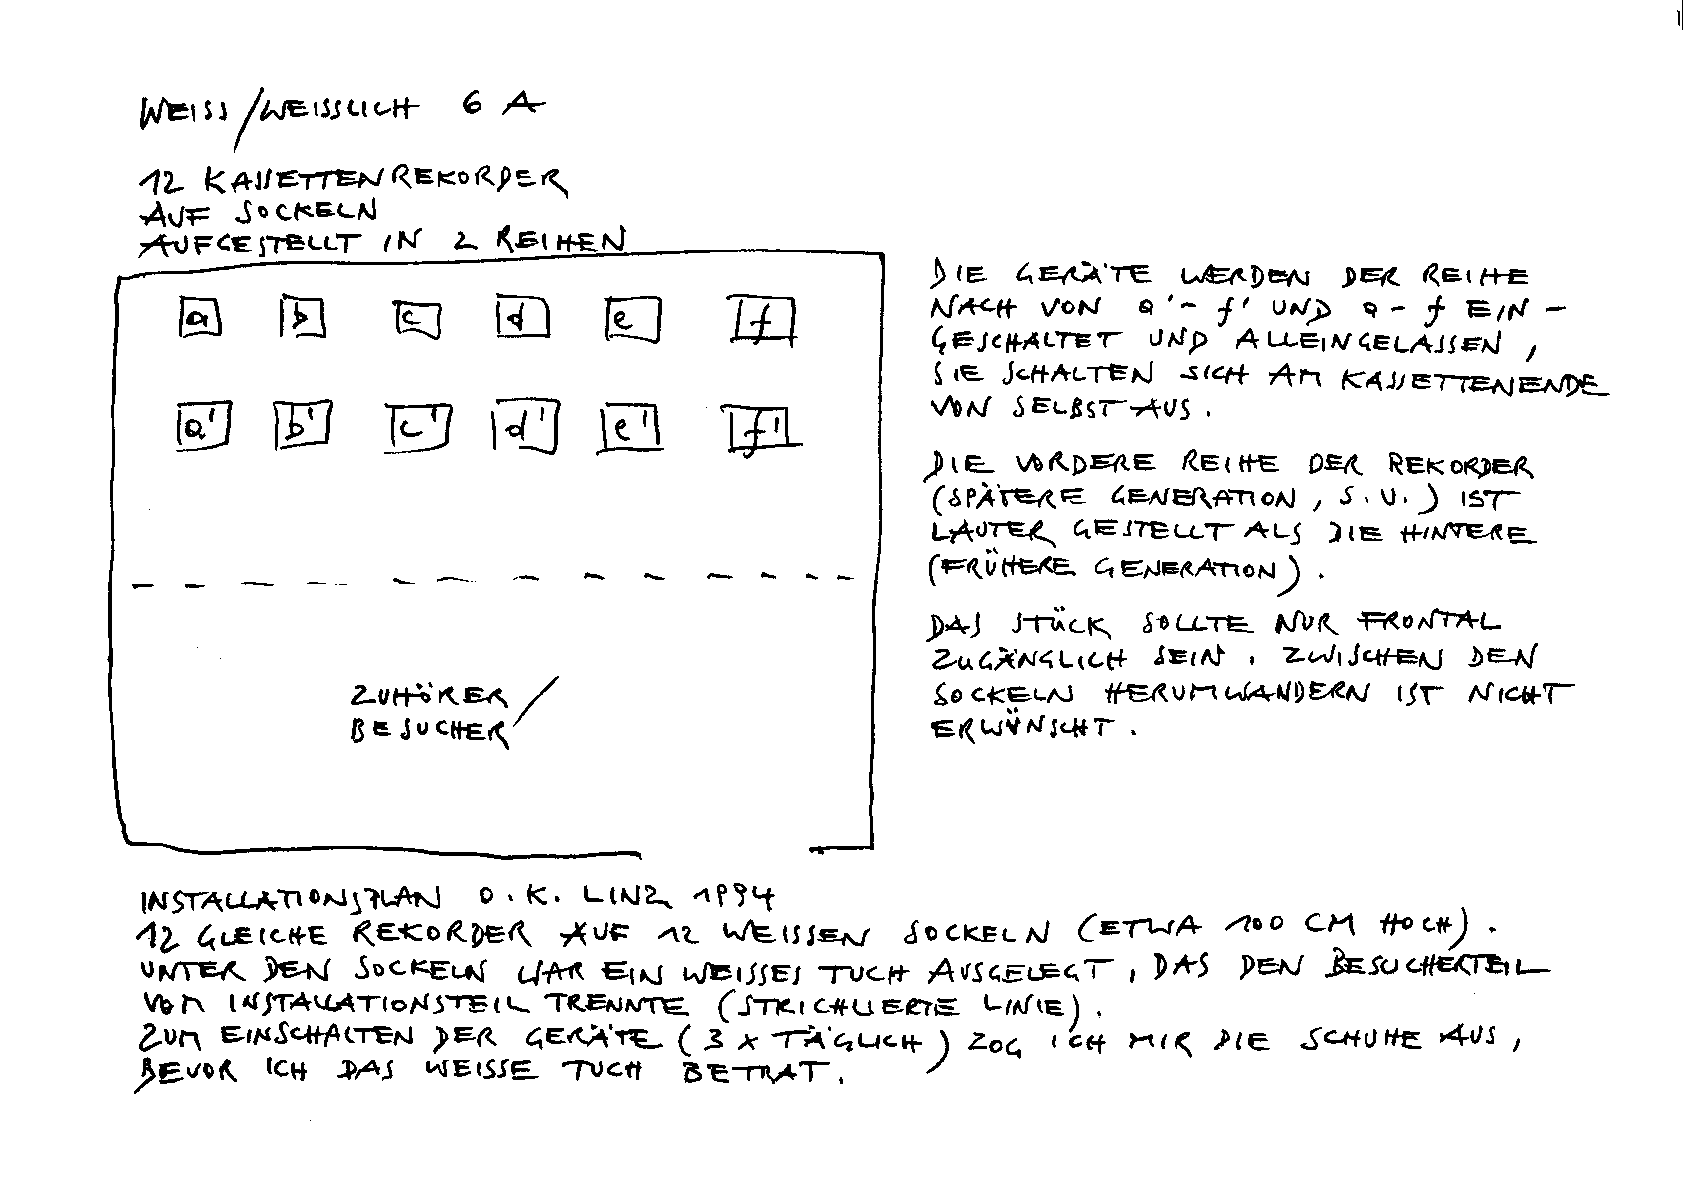 WEISS/WEISSLICH 6 A
12 KASSETTENREKORDER
AUF SOCKELN
AUFGESTELLT IN 2 REIHEN
a b c d e f
a' b' c' d' e' f'
ZUHÖRER/
BESUCHER
DIE GERÄTE WERDEN DER REIHE
NACH VON a'- f' UND a - f EIN-
GESCHALTET UND ALLEINGELASSEN,
SIE SCHALTEN SICH AM KASSETTENENDE
VON SELBST AUS.
DIE VORDERE REIHE DER REKORDER
(SPÄTERE GENERATION, S.U.) IST
LAUTER GESTELLT ALS DIE HINTERE
(FRÜHERE GENERATION).
DAS STÜCK SOLLTE NUR FRONTAL
ZUGÄNGLICH SEIN. ZWISCHEN DEN
SOCKELN HERUMWANDERN IST NICHT
ERWÜNSCHT.
INSTALLATIONSPLAN O.K. LINZ 1994
12 GLEICHE REKORDER AUF 12 WEISSEN SOCKELN (ETWA 100 CM HOCH).
UNTER DEN SOCKELN WAR EIN WEISSES TUCH AUSGELEGT, DAS DEN BESUCHERTEIL
VOM INSTALLATIONSTEIL TRENNTE (STRICHLIERTE LINIE).
ZUM EINSCHALTEN DER GERÄTE (3 x TÄGLICH) ZOG ICH MIR DIE SCHUHE AUS,
BEVOR ICH DAS WEISSE TUCH BETRAT.